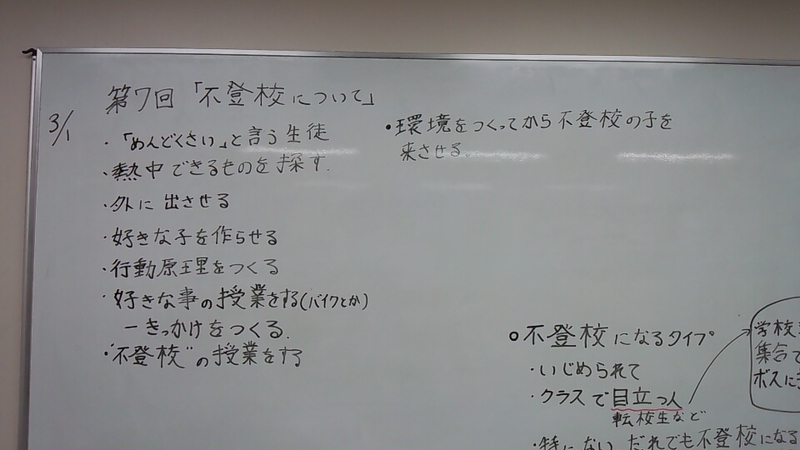 3/1
第7回「不登校について」
・「めんどくさい」と言う生徒
・熱中できるものを探す.
・外に出させる
・好きな子を作らせる
・行動原理をつくる
・好きな事の授業をする(バイクとか)
ーきっかけをつくる.
・"不登校"の授業をする
・環境をつくってから不登校の子を
来させる。
○不登校になるタイプ
・いじめられて
・クラスで目立つ人
転校生など
・特にない だれでも不登校になる
学校
集合
ボスに